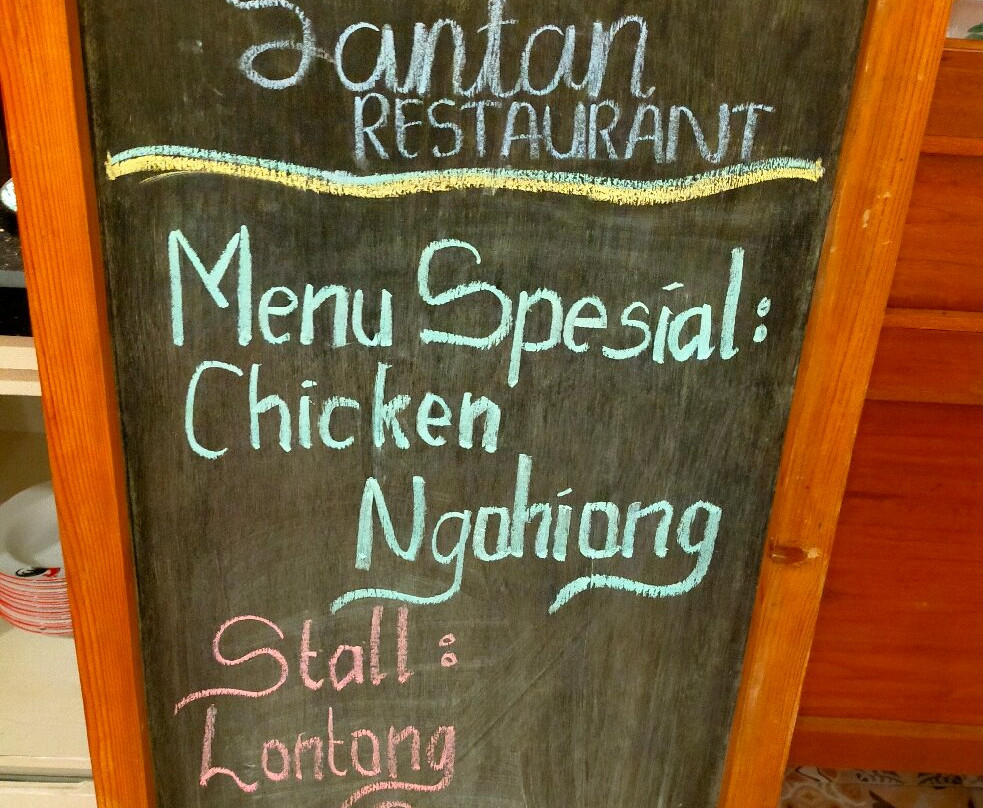 Santan
RESTAURANT
Menu Spesial:
Chicken
Ngohiong
Stall:
Lontong